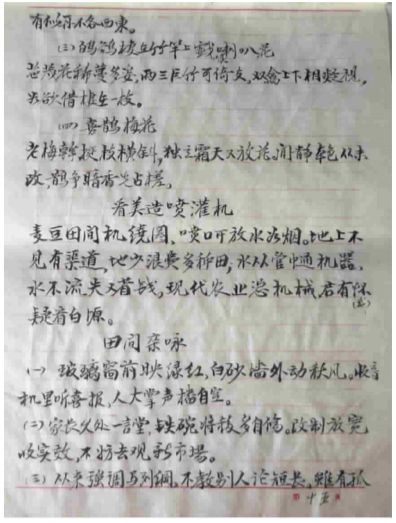 有
(三)鸲鹆枝立竹竿上戏喇叭花
葱茏花稀蔓多姿,两三巨竹可倚支,双禽上下相凝视,
为欲借枯立一枝。
(四)喜鹊梅花
老梅 挺枝横斜,独立霜天又放花,闲静本色从未
改,鹊争暗香先占槎。
看美造喷灌机
麦豆田间机绕圈,喷口开放水为烟。地上不
见有渠道,地少浪费多种田;水从管中通机器,
水不流失又省钱,现代农业选机械,君有怀
疑看白源。
田间杂咏
(一)玻璃窗前映绿红,白砂墙外动秋风。收音
机里听喜报,人大掌声播自空。
(二)家长父处一言堂,铁碗将枝多自修。改制放宽
收实效,不妨去观新市场。
(三)从来强调与列纲,不教别人论短长,虽有孤
第十五页